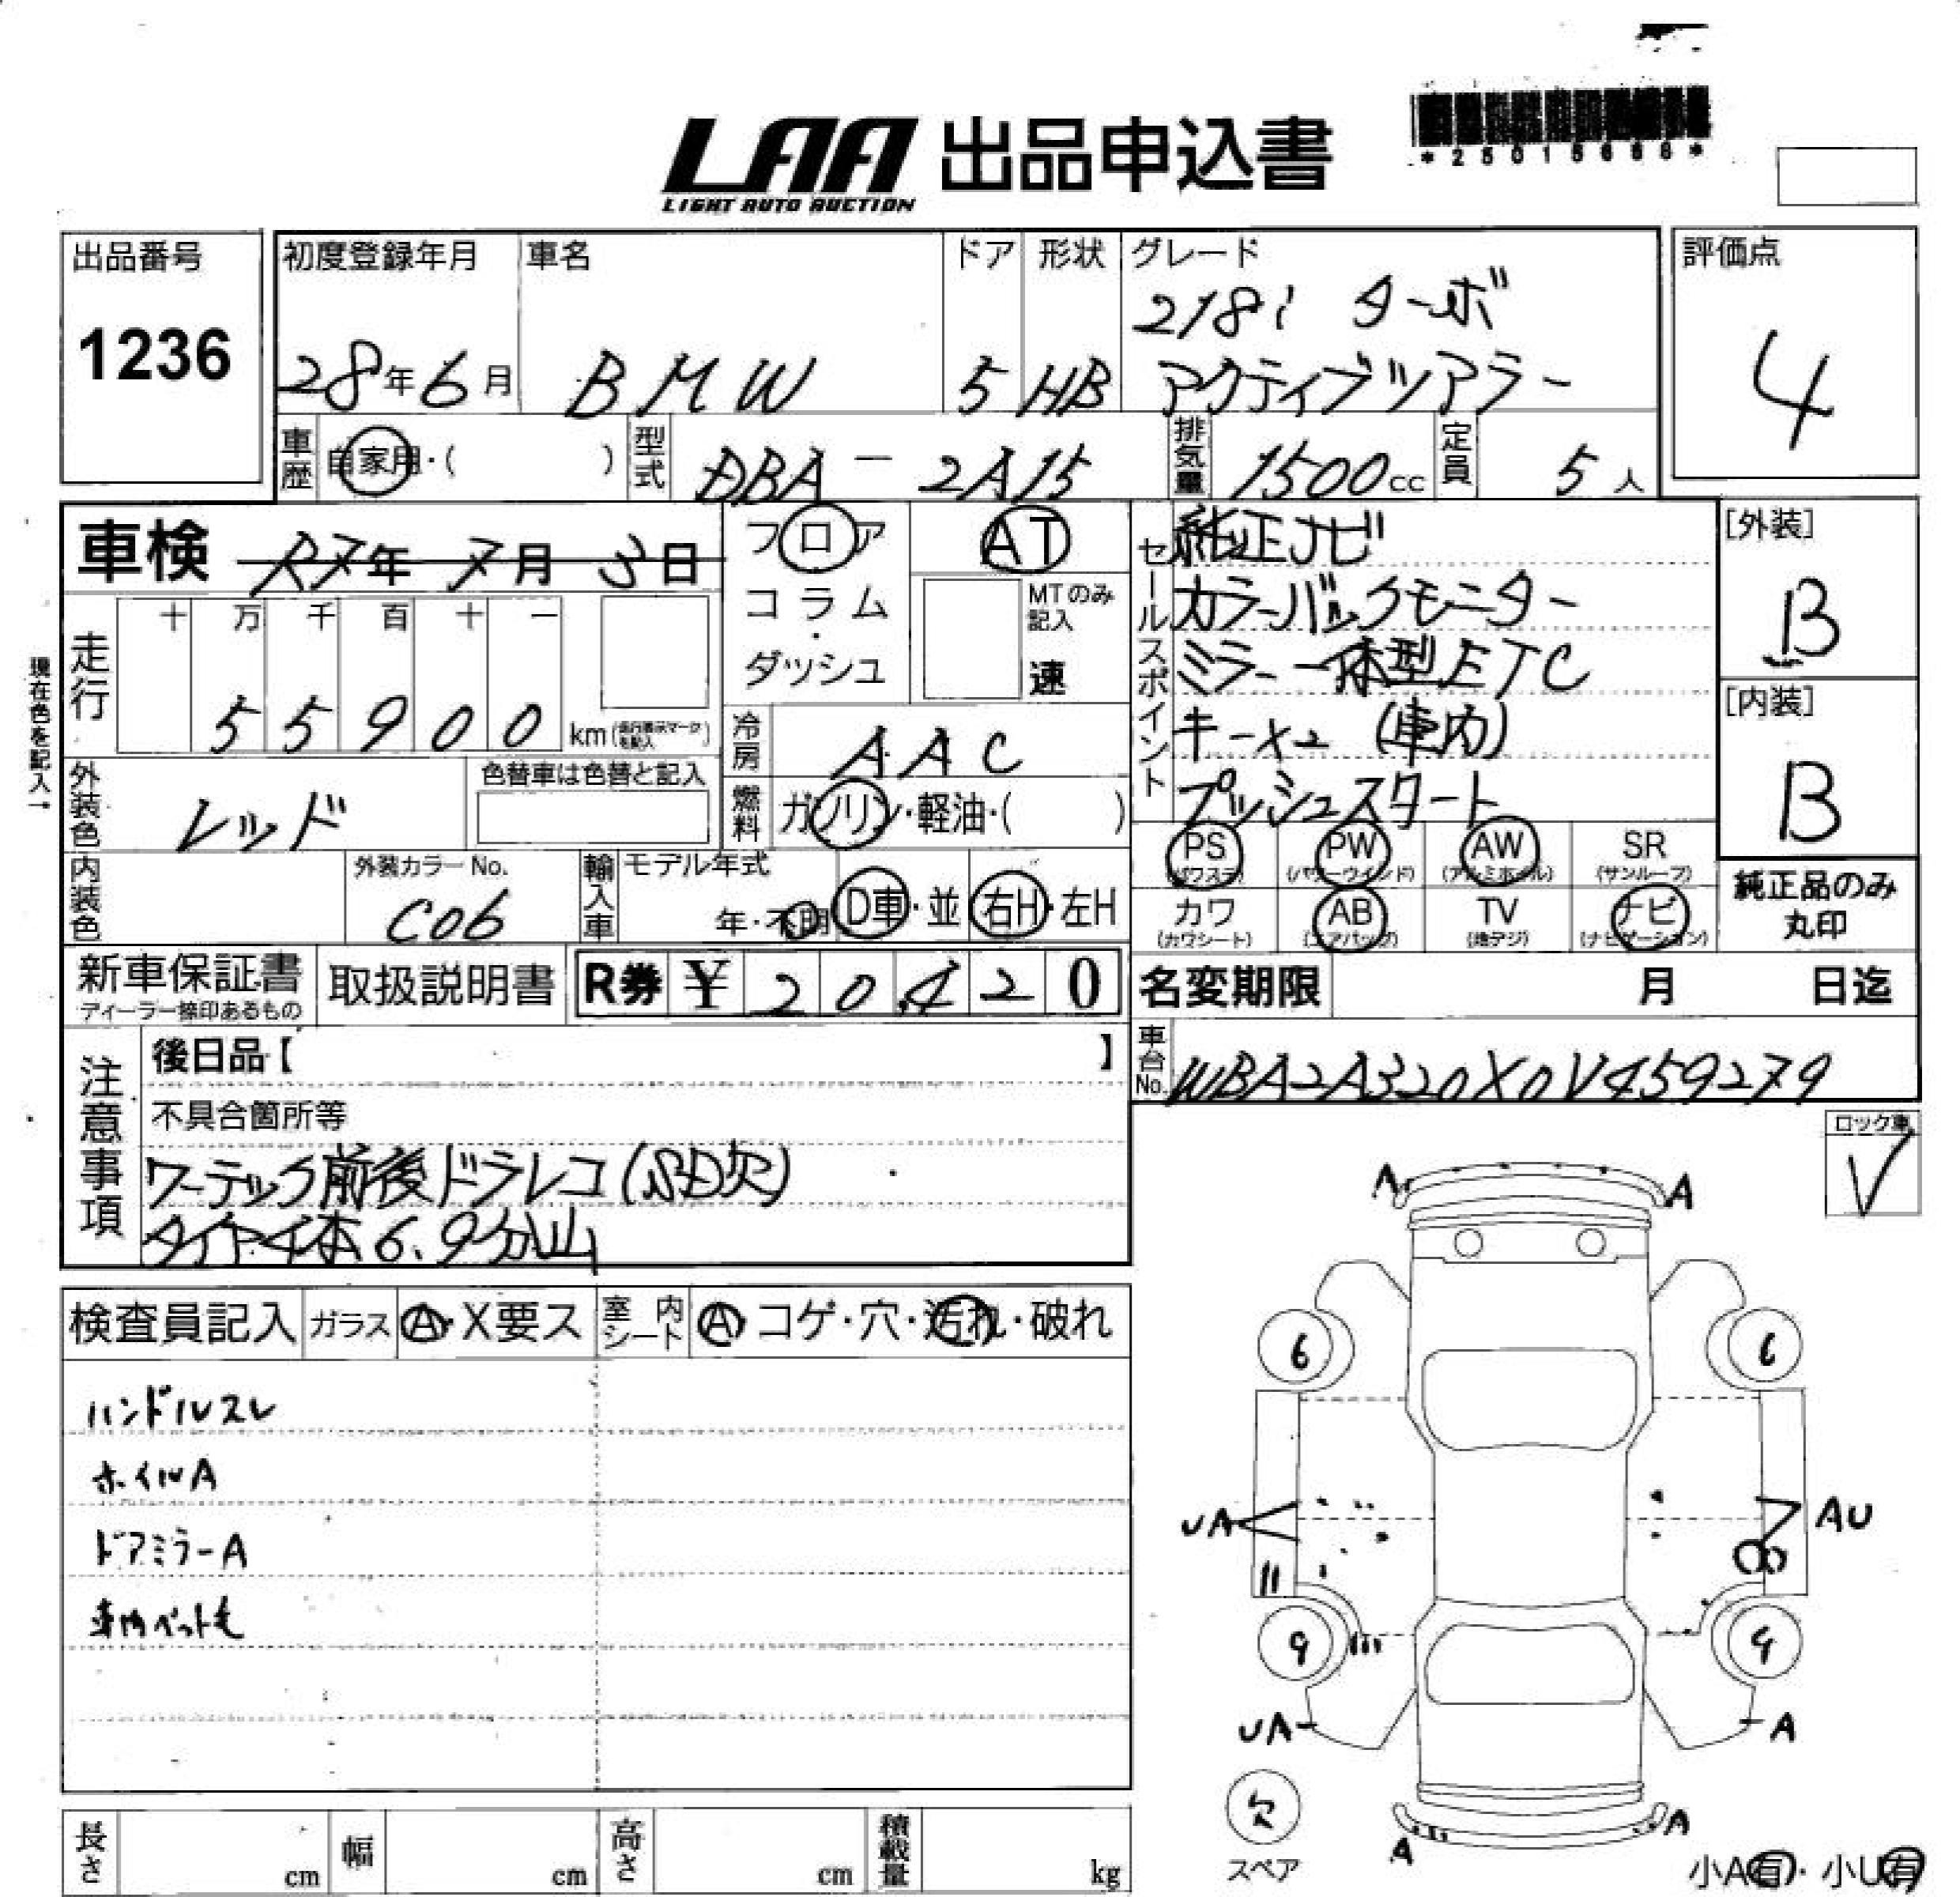 *25015666*
LAA 出品申込書
LIGHT AUTO AUCTION
出品番号
1236
初度登録年月
28年6月
車名
BMW
ドア
5
形状
HB
グレード
218i ターボ
アクティブツアラー
評価点
4
車歴 自家用・( )
型式 DBA-2A15
排気量 1500cc
定員 5人
車検 R7年7月3日
フロア
コラム
・
ダッシュ
AT
MTのみ
記入
速
走行
十 万 千 百 十 一
5 5 9 0 0 km(走行表示マークを記入)
冷房 AAC
燃料 ガソリン・軽油・( )
現在色を記入→
外装色 レッド
色替車は色替と記入
内装色
外装カラーNo.
C06
輸入車
モデル年式
年・不明
D車・並
右H・左H
セールスポイント
純正ナビ
カラーバックモニター
ミラー一体型ETC
キー×2 (車内)
プッシュスタート
PS
(パワステ)
PW
(パワーウインド)
AW
(アルミホイル)
SR
(サンルーフ)
カワ
(カワシート)
AB
(エアバッグ)
TV
(地デジ)
ナビ
(ナビゲーション)
[外装]
B
[内装]
B
純正品のみ
丸印
新車保証書
ディーラー捺印あるもの
取扱説明書
R券 ¥ 20,420
名変期限 月 日迄
車台No. WBA2A320X0V459279
注意事項
後日品【 】
不具合箇所等
ワーテック前後ドラレコ(SD欠)
タイヤ4本6.9分山
ロック車
V
検査員記入
ガラス A・X要ス
室内シート A・コゲ・穴・汚れ・破れ
ハンドルスレ
ホイルA
ドアミラーA
車内ペット毛
A A
6 6
UA AU
9 9
UA A
欠
スペア
A A
小A有・小U有
長さ cm
幅 cm
高さ cm
積載量 kg